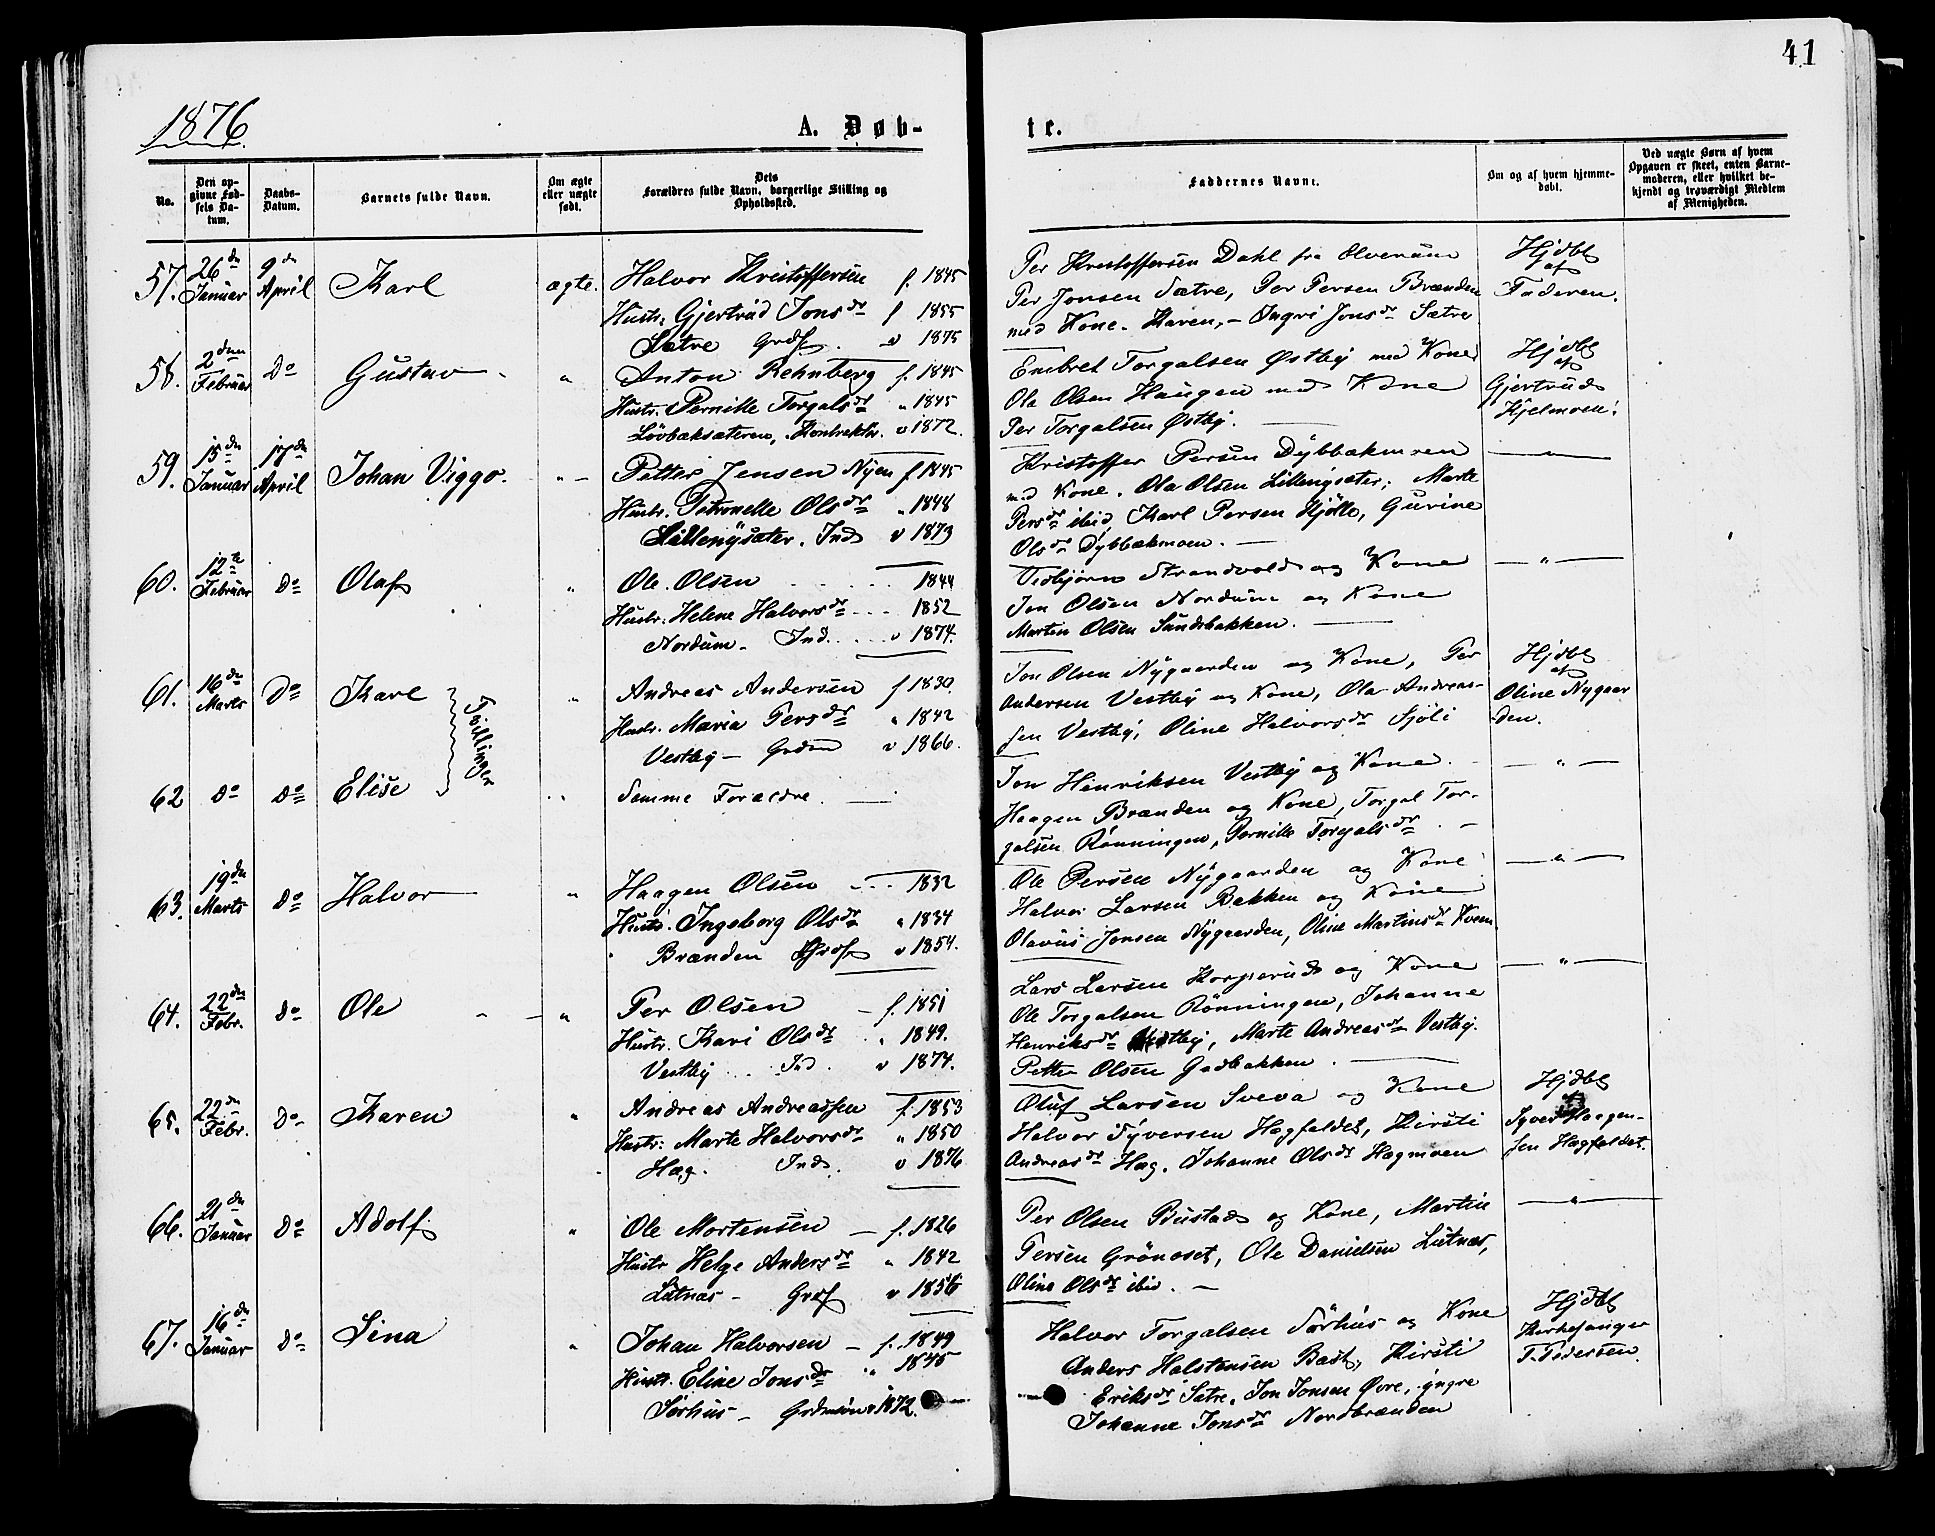 41
1876
A. Døb-
te.
No.
Den op-
givne Fød-
sels Da-
tum.
Daabs-
Datum.
Barnets fulde Navn.
Om ægte
eller uægte
født.
Dets
Forældres fulde Navn, borgerlige Stilling og
Opholdssted.
Faddernes Navne.
Om og af hvem hjemme-
døbt.
Ved uægte Børn af hvem
Opgaven er skeet, enten Barne-
moderen, eller hvilket be-
kjendt og troværdigt Medlem
af Menigheden.
57. 26de Januar 9de April Karl ægte.
Halvor Kristoffersen f. 1845
Hustr. Gjertrud Jonsdr f 1855
Sætre Grdf. v 1875
Per Kristoffersen Dahl fra Elverum
Per Jonsen Sætre, Per Persen Brænden
med Kone. Karen, – Ingri Jonsdr Sætre
Hjdbt
af
Faderen.
58. 2den Februar Do Gustav „
Anton Rehnberg f. 1845
Hustr. Pernille Torgalsdr „ 1845
Løvbæksæteren, Kontraktr. v 1872.
Embret Torgalsen Østby med Kone
Ola Olsen Haugen med Kone
Per Torgalsen Østby.
Hjdbt
af
Gjertrud
Kjelmoen.
59. 15de Januar 17de April Johan Viggo. „
Petter Jensen Nyen f. 1845
Hustr. Petronelle Olsdr „ 1848
Lillengsæter. Ind v 1873
Kristoffer Persen Dybbækmoen
med Kone. Ola Olsen Lillengsæter; Marte
Persdr ibid, Karl Persen Kjølle, Gurine
Olsdr Dybbækmoen. —
— „ —
60. 12te Februar Do Olaf „
Ole Olsen 1844
Hustr. Helene Halvorsdr 1852
Nordum – Ind. v 1874.
Vebjørn Strandvold og Kone
Jon Olsen Nordum og Kone
Martin Olsen Sundsbakken.
— „ —
61. 16de Marts Do Karl „
Tvillinger
Andreas Andersen f 1830.
Hustr. Maria Persdr „ 1842
Vestby – Grdm v 1866.
Jon Olsen Nygaarden og Kone, Per
Andersen Vestby og Kone, Ola Andreas-
sen Vestby, Oline Halvorsdr Sjøli
Hjdbt
af
Oline Nygaar
den.
62 Do Do Elise „
Samme Forældre.
Jon Henriksen Vestby og Kone.
Haagen Brænden og Kone, Torgal Tor-
galsen Rønningen, Pernille Torgalsdr. –
— „ —
63. 19de Marts Do Halvor „
Haagen Olsen 1832
Hustr. Ingeborg Olsdr „ 1834
Brænden Grdf v 1854.
Ole Persen Nygaarden og Kone
Halvor Larsen Bakken og Kone
Olavus Jonsen Nygaarden, Oline Martinsdr Kvern
— „ —
64. 22de Febr. Do Ole „
Per Olsen – f. 1851
Hustr. Kari Olsdr „ 1849.
Vestby Ind. v 1874.
Lars Larsen Korperud og Kone
Ole Torgalsen Rønningen, Johanne
Henriksdr Vestby, Marte Andreasdr Vestby.
Petter Olsen Gadbakken.
— „ —
65. 22de Febr. Do Karen „
Andreas Andreassen f. 1853
Hustr. Marte Halvorsdr „ 1850
Hag. Ind. v 1876
Oluf Larsen Sveva og Kone
Halvor Syversen Hagfaldet, Kirsti
Andreasdr Hag. Johanne Olsdr Hagmoen
Hjdbt
af
Syver Haagen-
sen Hagfaldet.
66. 21de Januar Do Adolf. „
Ole Mortensen — f. 1826
Hustr Helge Andersdr „ 1842
Lutnæs – Grdf v 1856
Per Olsen Bustad og Kone, Martin
Persen Grønoset, Ole Danielsen Lutnæs,
Oline Olsdr ibid. —
— „ —
67. 16de Januar Do Lina „
Johan Halvorsen — f. 1849
Hustr. Eline Jonsdr „ 1845
Sørhus – Grdmön v 1872.
Halvor Torgalsen Sørhus og Kone
Anders Halstensen Bast, Kirsti
Eriksdr Sætre, Jon Jonsen Øvre, yngre
Johanne Jonsdr Nordbrænden
Hjdbt
Kirkesanger
T. Pedersen.